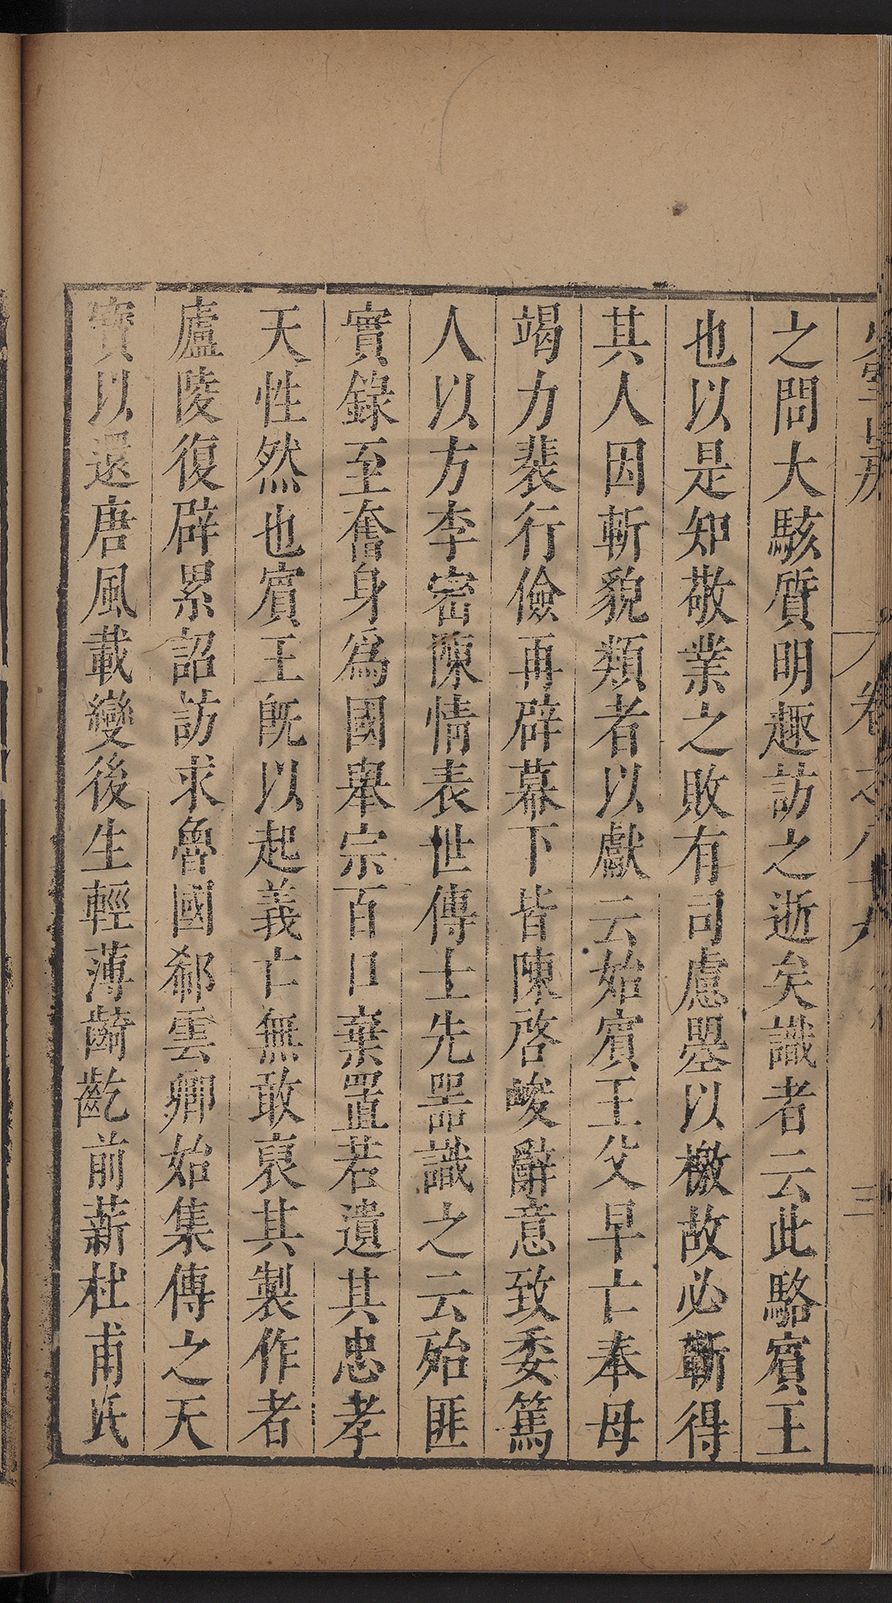 卷之八十九
三
之問大駭質明趣訪之逝矣識者云此駱賓王
也以是知敬業之敗有司慮嬰以檄故必斬得
其人因斬貌類者以獻云始賓王父早亡奉母
竭力裴行儉再辟幕下皆陳啓峻辭意致委篤
人以方李密陳情表世傳士先噐識之云殆匪
實錄至奮身爲國舉宗百口棄置若遺其忠孝
天性然也賓王旣以起義亡無敢裒其製作者
廬陵復辟累詔訪求魯國郗雲卿始集傳之天
寶以還唐風載變後生輕薄齮齕前薪杜甫氏